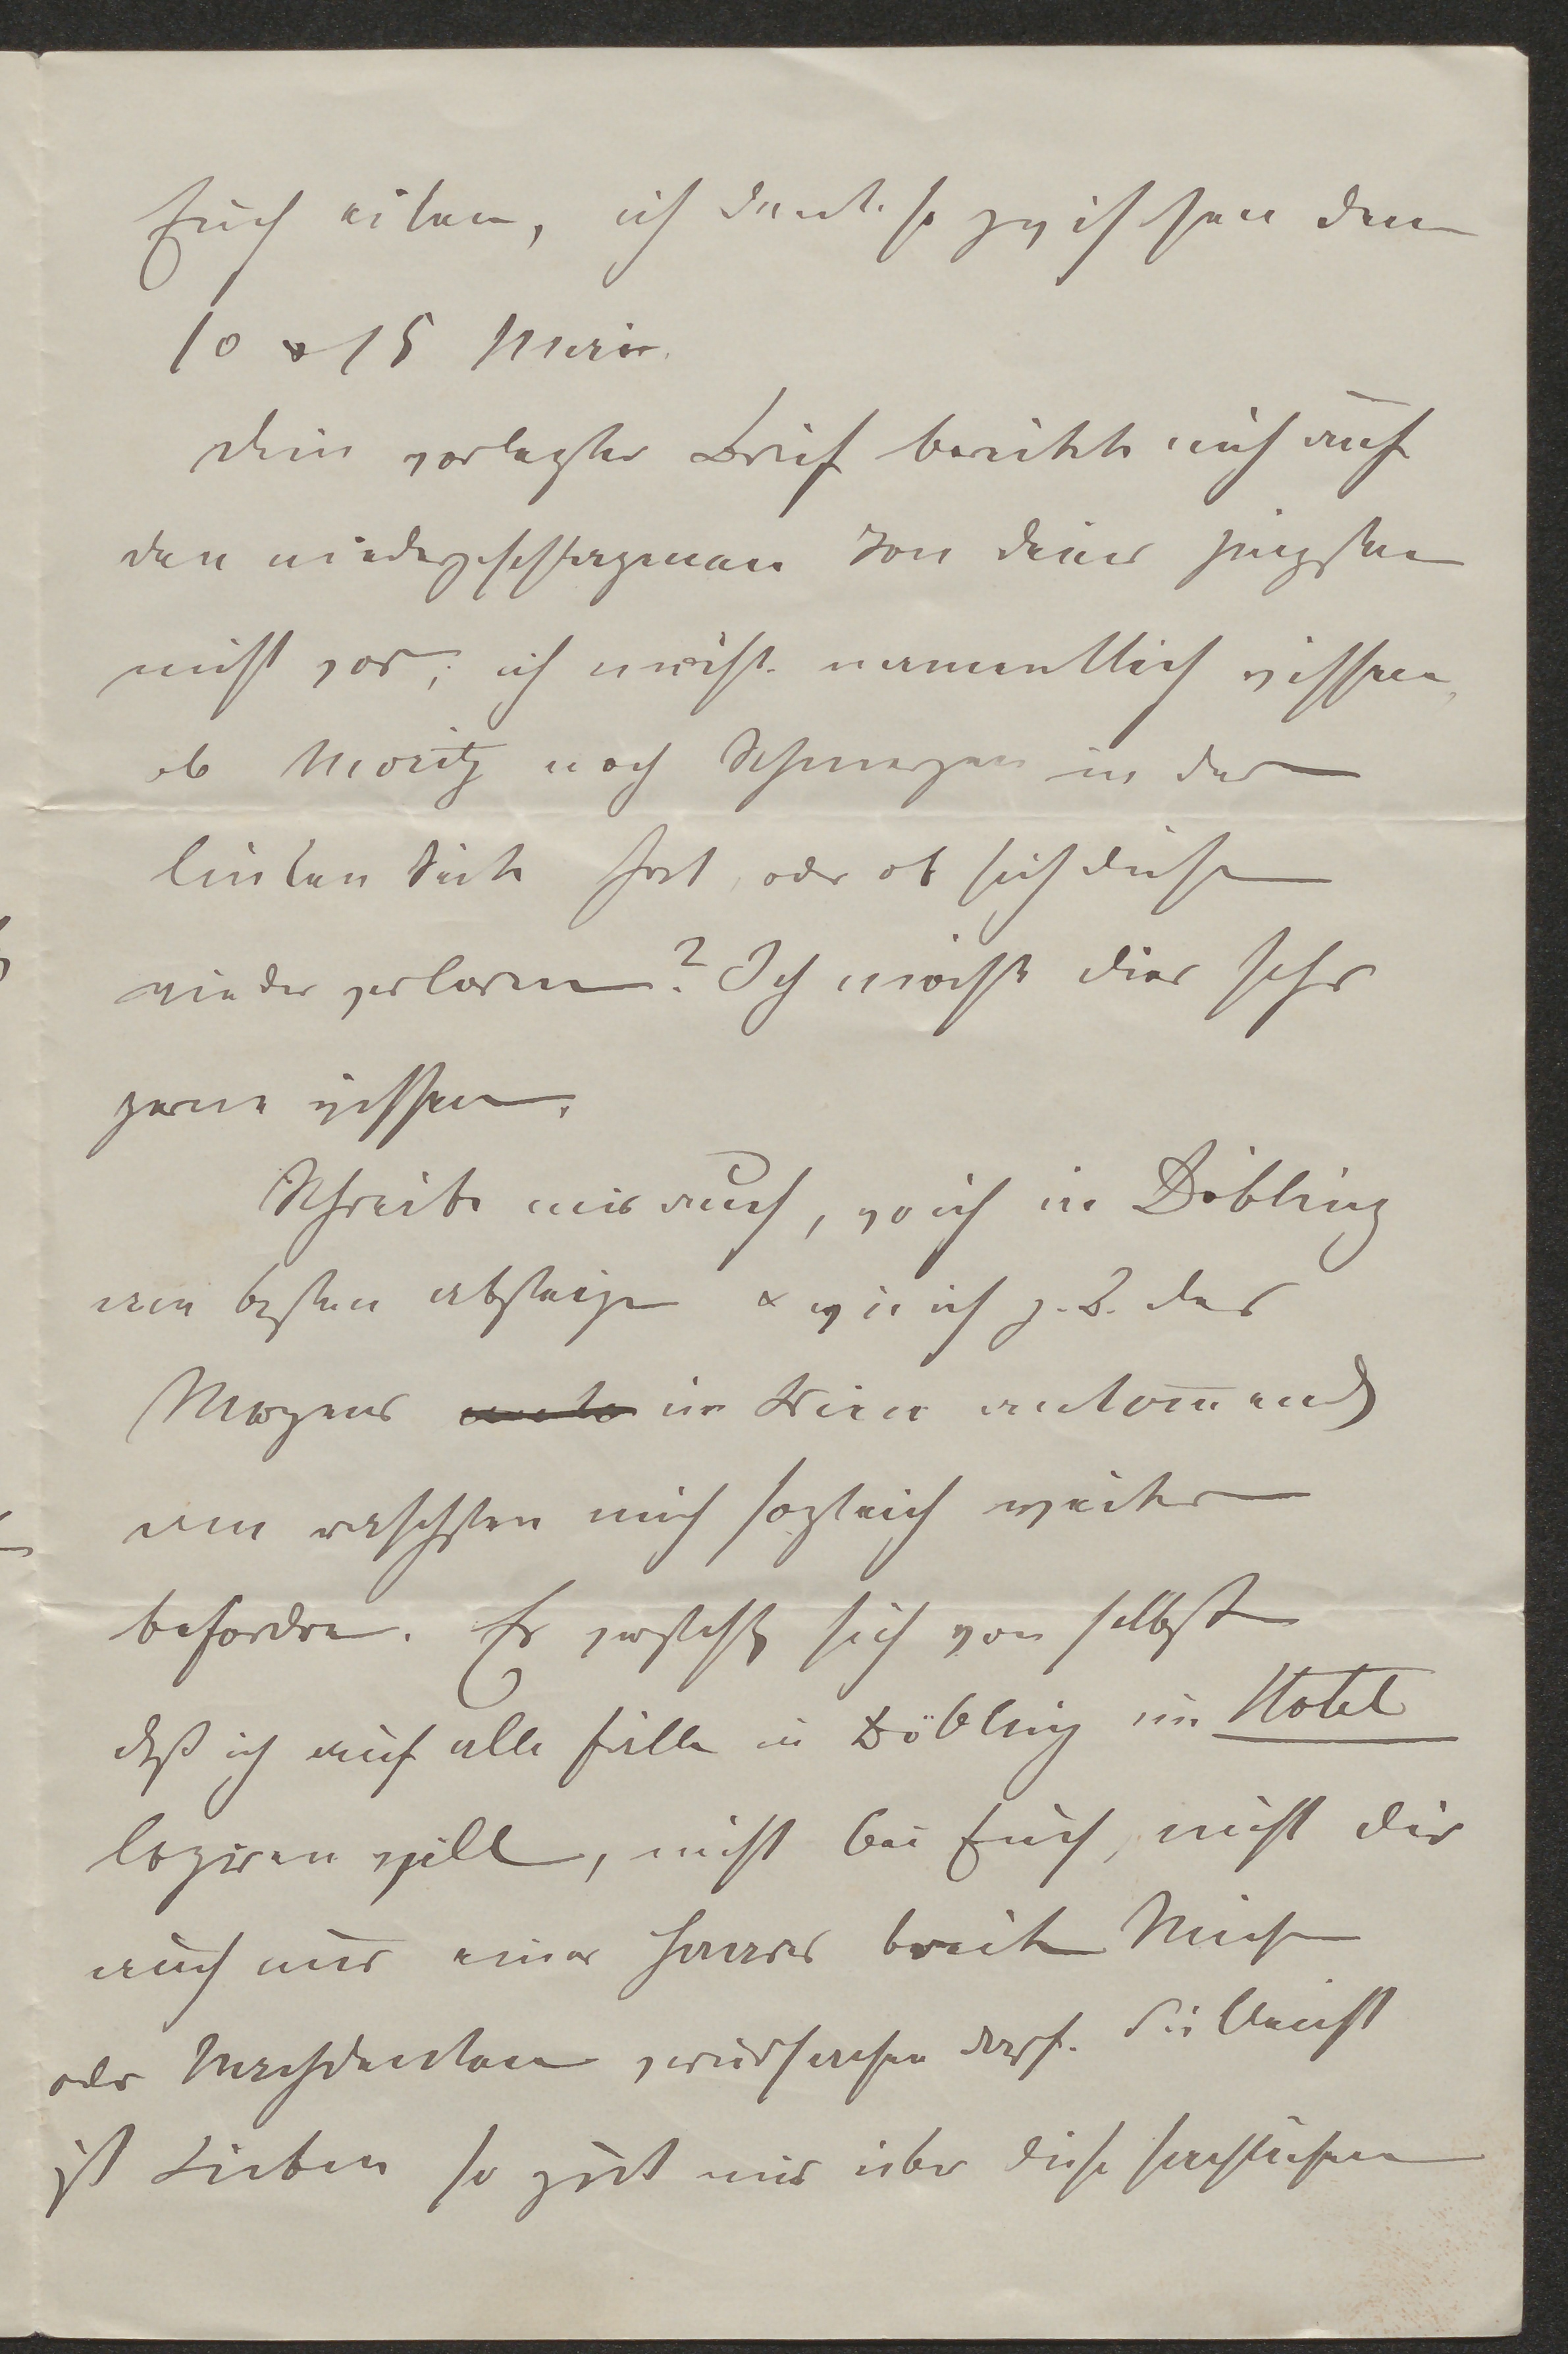 Euch eilen, ich denke so zwischen dem
10 & 15 Mai.
Dein vorletzter Brief bereitete mich auf
den niedergeschlagenen Ton deines jüngsten
nicht vor; ich möchte namentlich wissen,
ob Moritz noch Schmerzen in der
linken Seite hat, oder ob sich diese
wieder verloren? Ich möchte dies sehr
gerne wissen.
Schreibe mir auch, wo ich in Döbling
am besten absteige & wie ich z. B. des
Morgens in Wien ankom̅end
am raschesten mich sogleich weiter
befördre. Es versteht sich von selbst
daß ich auf alle Fälle in Döbling im Hotel
logiren will, nicht bei Euch, nicht dir
auch nur eines Haares breite Mühe
oder Nachdenken verursachen darf. Vielleicht
ist Lieben so gut mir über diese sachlichen